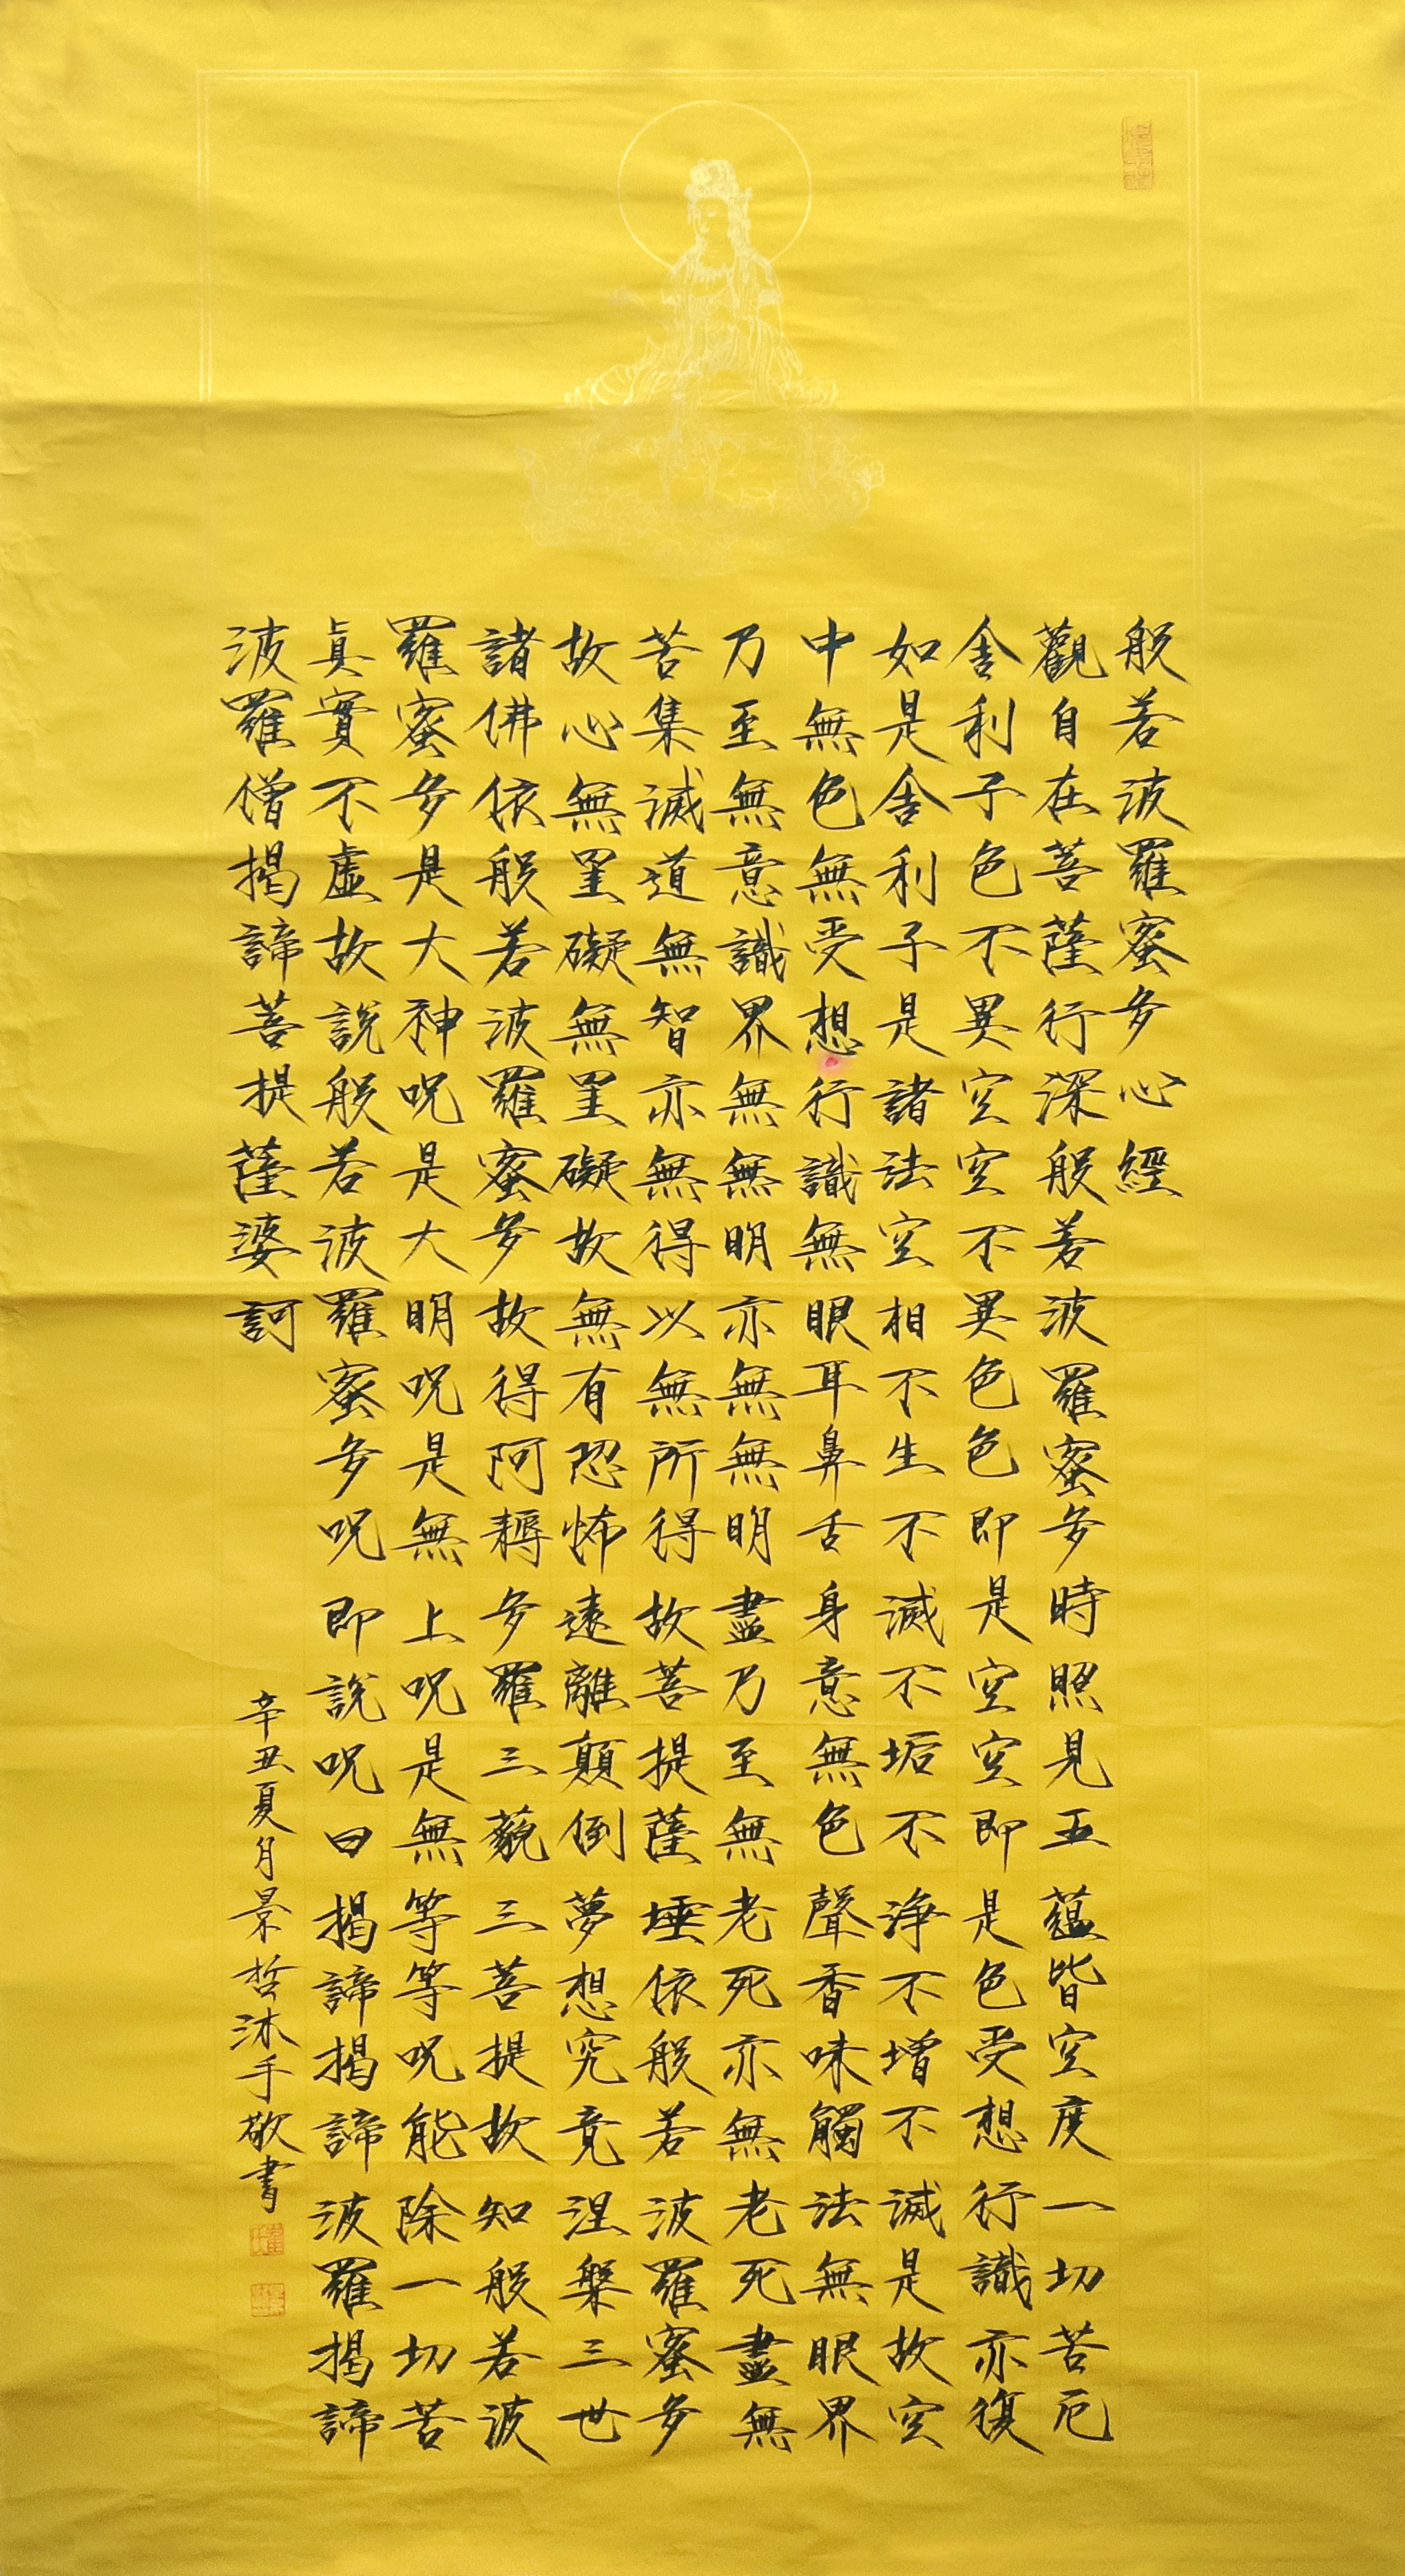 般若波羅蜜多心經
觀自在菩薩行深般若波羅蜜多時照見五蘊皆空度一切苦厄
舍利子色不異空空不異色色即是空空即是色受想行識亦復
如是舍利子是諸法空相不生不滅不垢不淨不增不滅是故空
中無色無受想行識無眼耳鼻舌身意無色聲香味觸法無眼界
乃至無意識界無無明亦無無明盡乃至無老死亦無老死盡無
苦集滅道無智亦無得以無所得故菩提薩埵依般若波羅蜜多
故心無罣礙無罣礙故無有恐怖遠離顛倒夢想究竟涅槃三世
諸佛依般若波羅蜜多故得阿耨多羅三藐三菩提故知般若波
羅蜜多是大神呪是大明呪是無上呪是無等等呪能除一切苦
真實不虛故說般若波羅蜜多呪即說呪曰揭諦揭諦波羅揭諦
波羅僧揭諦菩提薩婆訶
辛丑夏月景哲沐手敬書